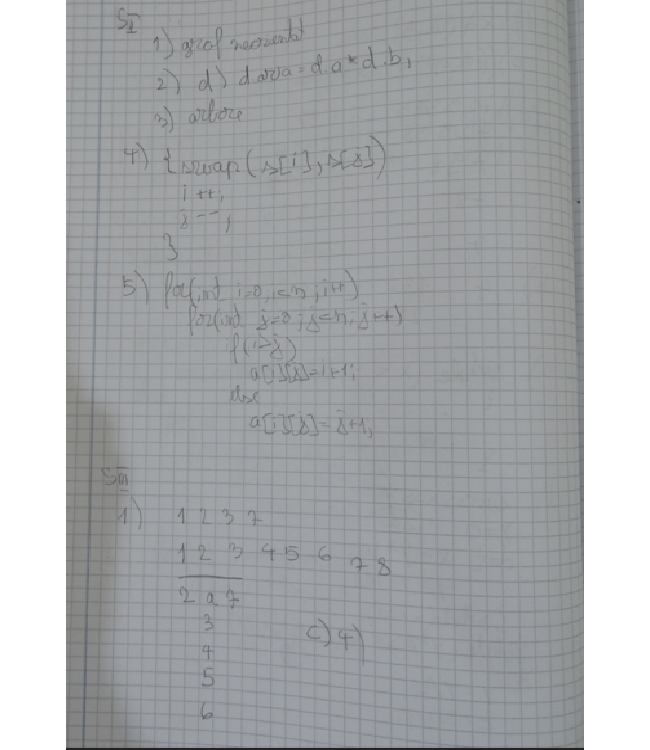 SII
1) graf neorientat
2) d) d.aria = d.a * d.b;
3) arbore
4) {swap(s[i], s[j])
i++;
j--;
}
5) for(int i=0; i<n; i++)
for(int j=0; j<n; j++)
if(i>j)
a[i][j]=i+1;
else
a[i][j]=j+1;
SIII
1) 1 2 3 7
1 2 3 4 5 6 7 8
2 a 7
3
4
5
6
c) 4)